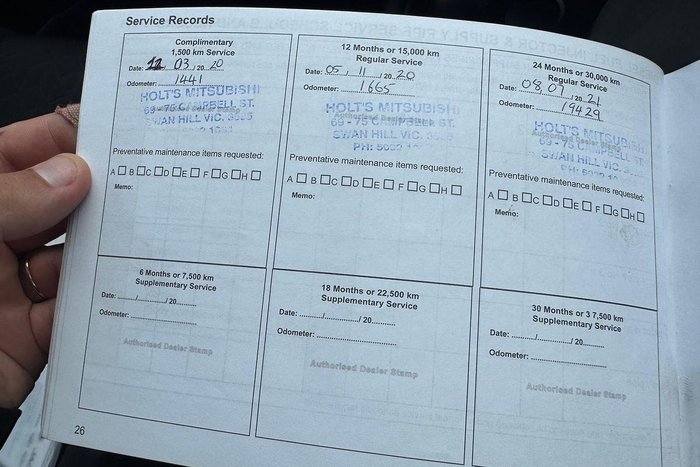 Service Records
Complimentary
1,500 km Service
Date: 12/03/20 20
Odometer: 1441
HOLT'S MITSUBISHI
69-75 CAMPBELL ST.
SWAN HILL VIC. 3585
Preventative maintenance items requested:
A B C D E F G H
Memo:
12 Months or 15,000 km
Regular Service
Date: 05/11/20 20
Odometer: 1665
HOLT'S MITSUBISHI
Authorised Dealer Stamp
69-75 CAMPBELL ST.
SWAN HILL VIC. 3585
Preventative maintenance items requested:
A B C D E F G H
Memo:
24 Months or 30,000 km
Regular Service
Date: 08/07/20 21
Odometer: 19429
HOLT'S MITSUBISHI
69-75 CAMPBELL ST.
SWAN HILL VIC.
Preventative maintenance items requested:
A B C D E F G H
Memo:
6 Months or 7,500 km
Supplementary Service
Date: ......../......../ 20..........
Odometer: ........................
Authorised Dealer Stamp
18 Months or 22,500 km
Supplementary Service
Date: ......../......../ 20..........
Odometer: ........................
Authorised Dealer Stamp
30 Months or 3 7,500 km
Supplementary Service
Date: ......../......../ 20..........
Odometer: ........................
Authorised Dealer Stamp
26